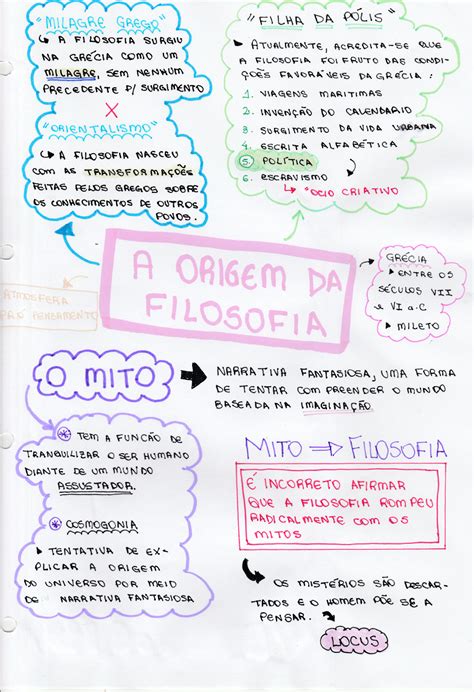 "MILAGRE GREGO"
↳ A FILOSOFIA SURGIU
NA GRÉCIA COMO UM
MILAGRE, SEM NENHUM
PRECEDENTE P/ SURGIMENTO
X
"ORIENTALISMO"
↳ A FILOSOFIA NASCEU
COM AS TRANSFORMAÇÕES
FEITAS PELOS GREGOS SOBRE
OS CONHECIMENTOS DE OUTROS
POVOS.
"FILHA DA PÓLIS"
▸ ATUALMENTE, ACREDITA-SE QUE
A FILOSOFIA FOI FRUTO DAS CONDI-
ÇÕES FAVORÁVEIS DA GRÉCIA:
1. VIAGENS MARITIMAS
2. INVENÇÃO DO CALENDARIO
3. SURGIMENTO DA VIDA URBANA
4. ESCRITA ALFABÉTICA
5. POLÍTICA
6. ESCRAVISMO
↳ "OCIO CRIATIVO
A ORIGEM DA
FILOSOFIA
GRÉCIA
▸ ENTRE OS
SÉCULOS VII
e VI a.C
▸ MILETO
ATMOSFERA
PRO PENSAMENTO
O MITO
→ NARRATIVA FANTASIOSA, UMA FORMA
DE TENTAR COMPREENDER O MUNDO
BASEADA NA IMAGINAÇÃO
* TEM A FUNCÃO DE
TRANQUILIZAR O SER HUMANO
DIANTE DE UM MUNDO
ASSUSTADOR.
* COSMOGONIA
▸ TENTATIVA DE EX-
PLICAR A ORIGEM
DO UNIVERSO POR MEIO
DE NARRATIVA FANTASIOSA
MITO ⇒ FILOSOFIA
É INCORRETO AFIRMAR
QUE A FILOSOFIA ROMPEU
RADICALMENTE COM OS
MITOS
▸ OS MISTÉRIOS SÃO DESCAR-
TADOS E O HOMEM PÕE SE A
PENSAR.
LOCUS